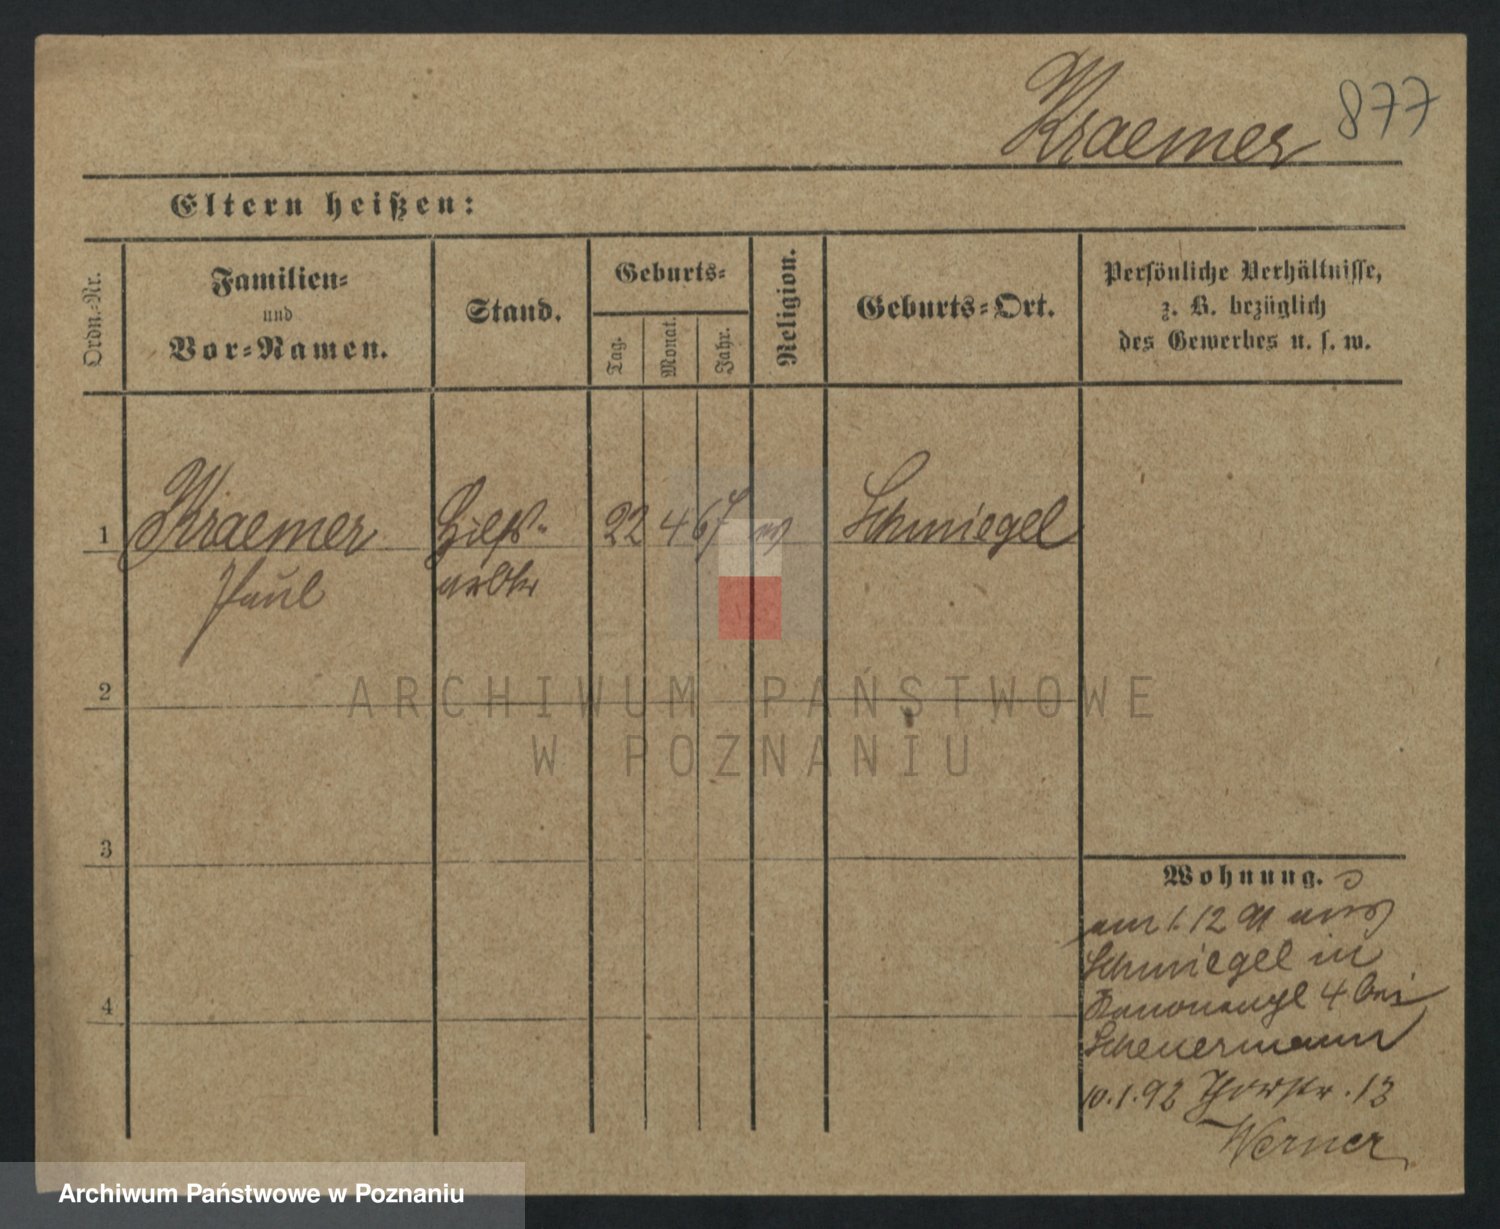 Kraemer 877
Eltern heißen:
Ordn.-Nr.
Familien-
und
Vor-Namen.
Stand.
Geburts-
Tag.
Monat.
Jahr.
Religion.
Geburts-Ort.
Persönliche Verhältnisse,
z. B. bezüglich
des Gewerbes u. s. w.
1 Kraemer Hilfs- 22 4 67 Schmiegel
Paul arbtr
2
ARCHIWUM PAŃSTWOWE
W POZNANIU
3
Wohnung.
am 1.12 91 aus
Schmiegel in
Kanonenpl 4 bei
Scheuermann
4
10.1.92 Thorstr. 13
Werner
Archiwum Państwowe w Poznaniu